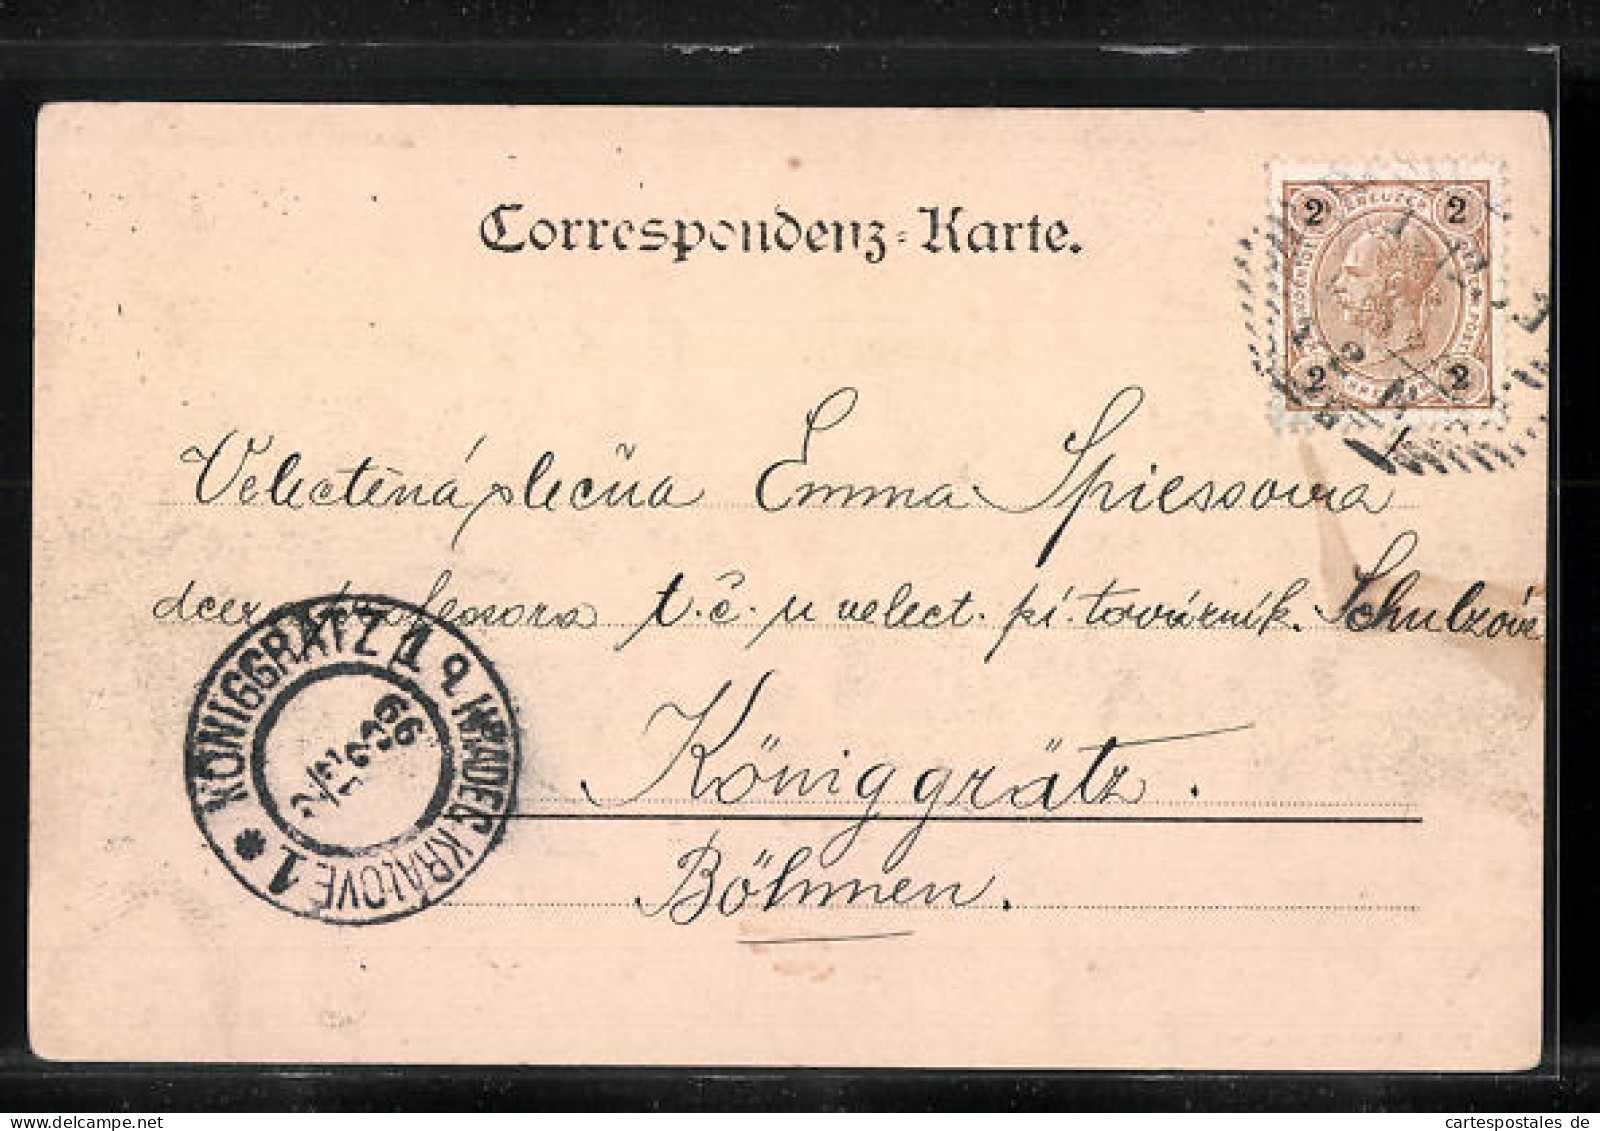 Correspondenz-Karte.
2 KREUZER 2
2 2
Velectěná slečna Emma Spiessova
dcera professora t. č. u velect. pí. továrník. Schulzové
Königgrätz.
Böhmen.
KÖNIGGRÄTZ 1
HRADEC KRÁLOVÉ 1
99
cartespostales de